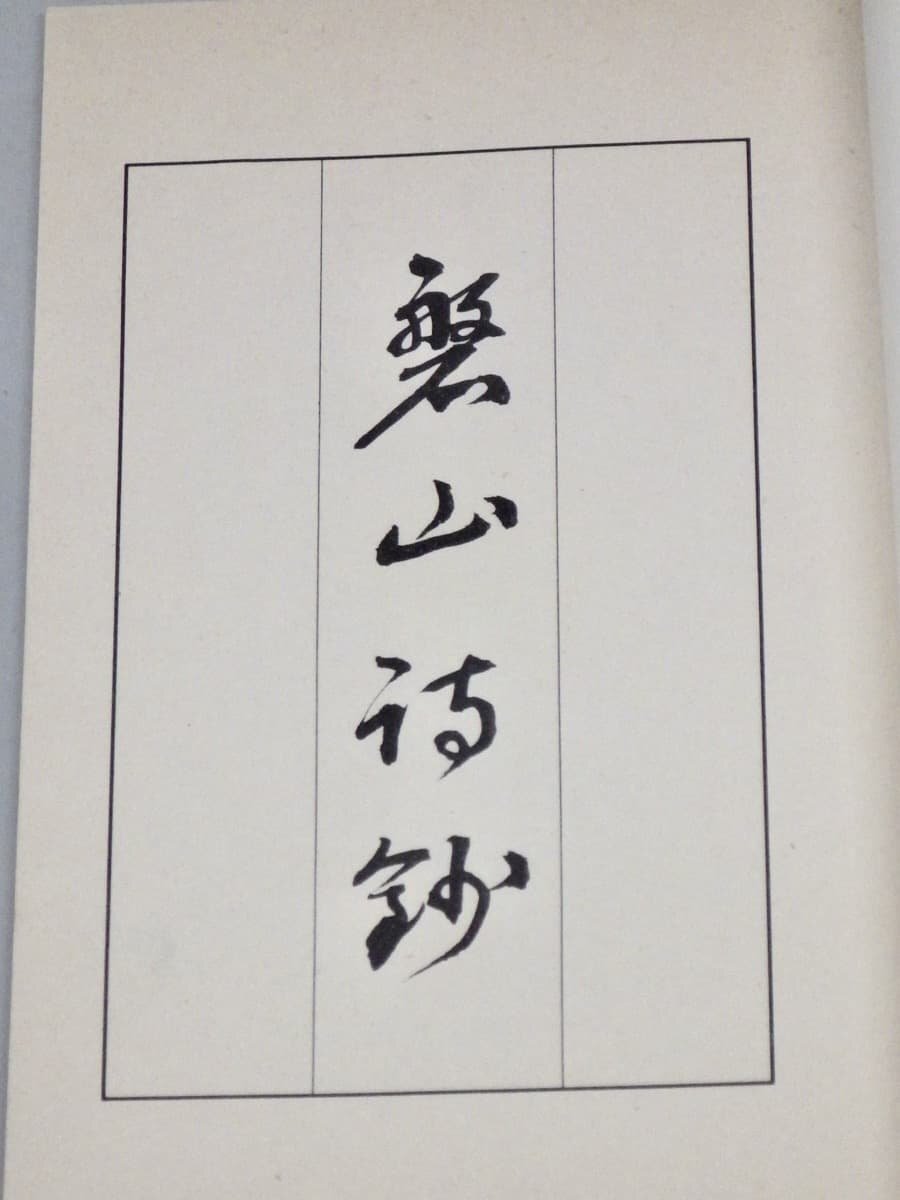 磐山詩鈔